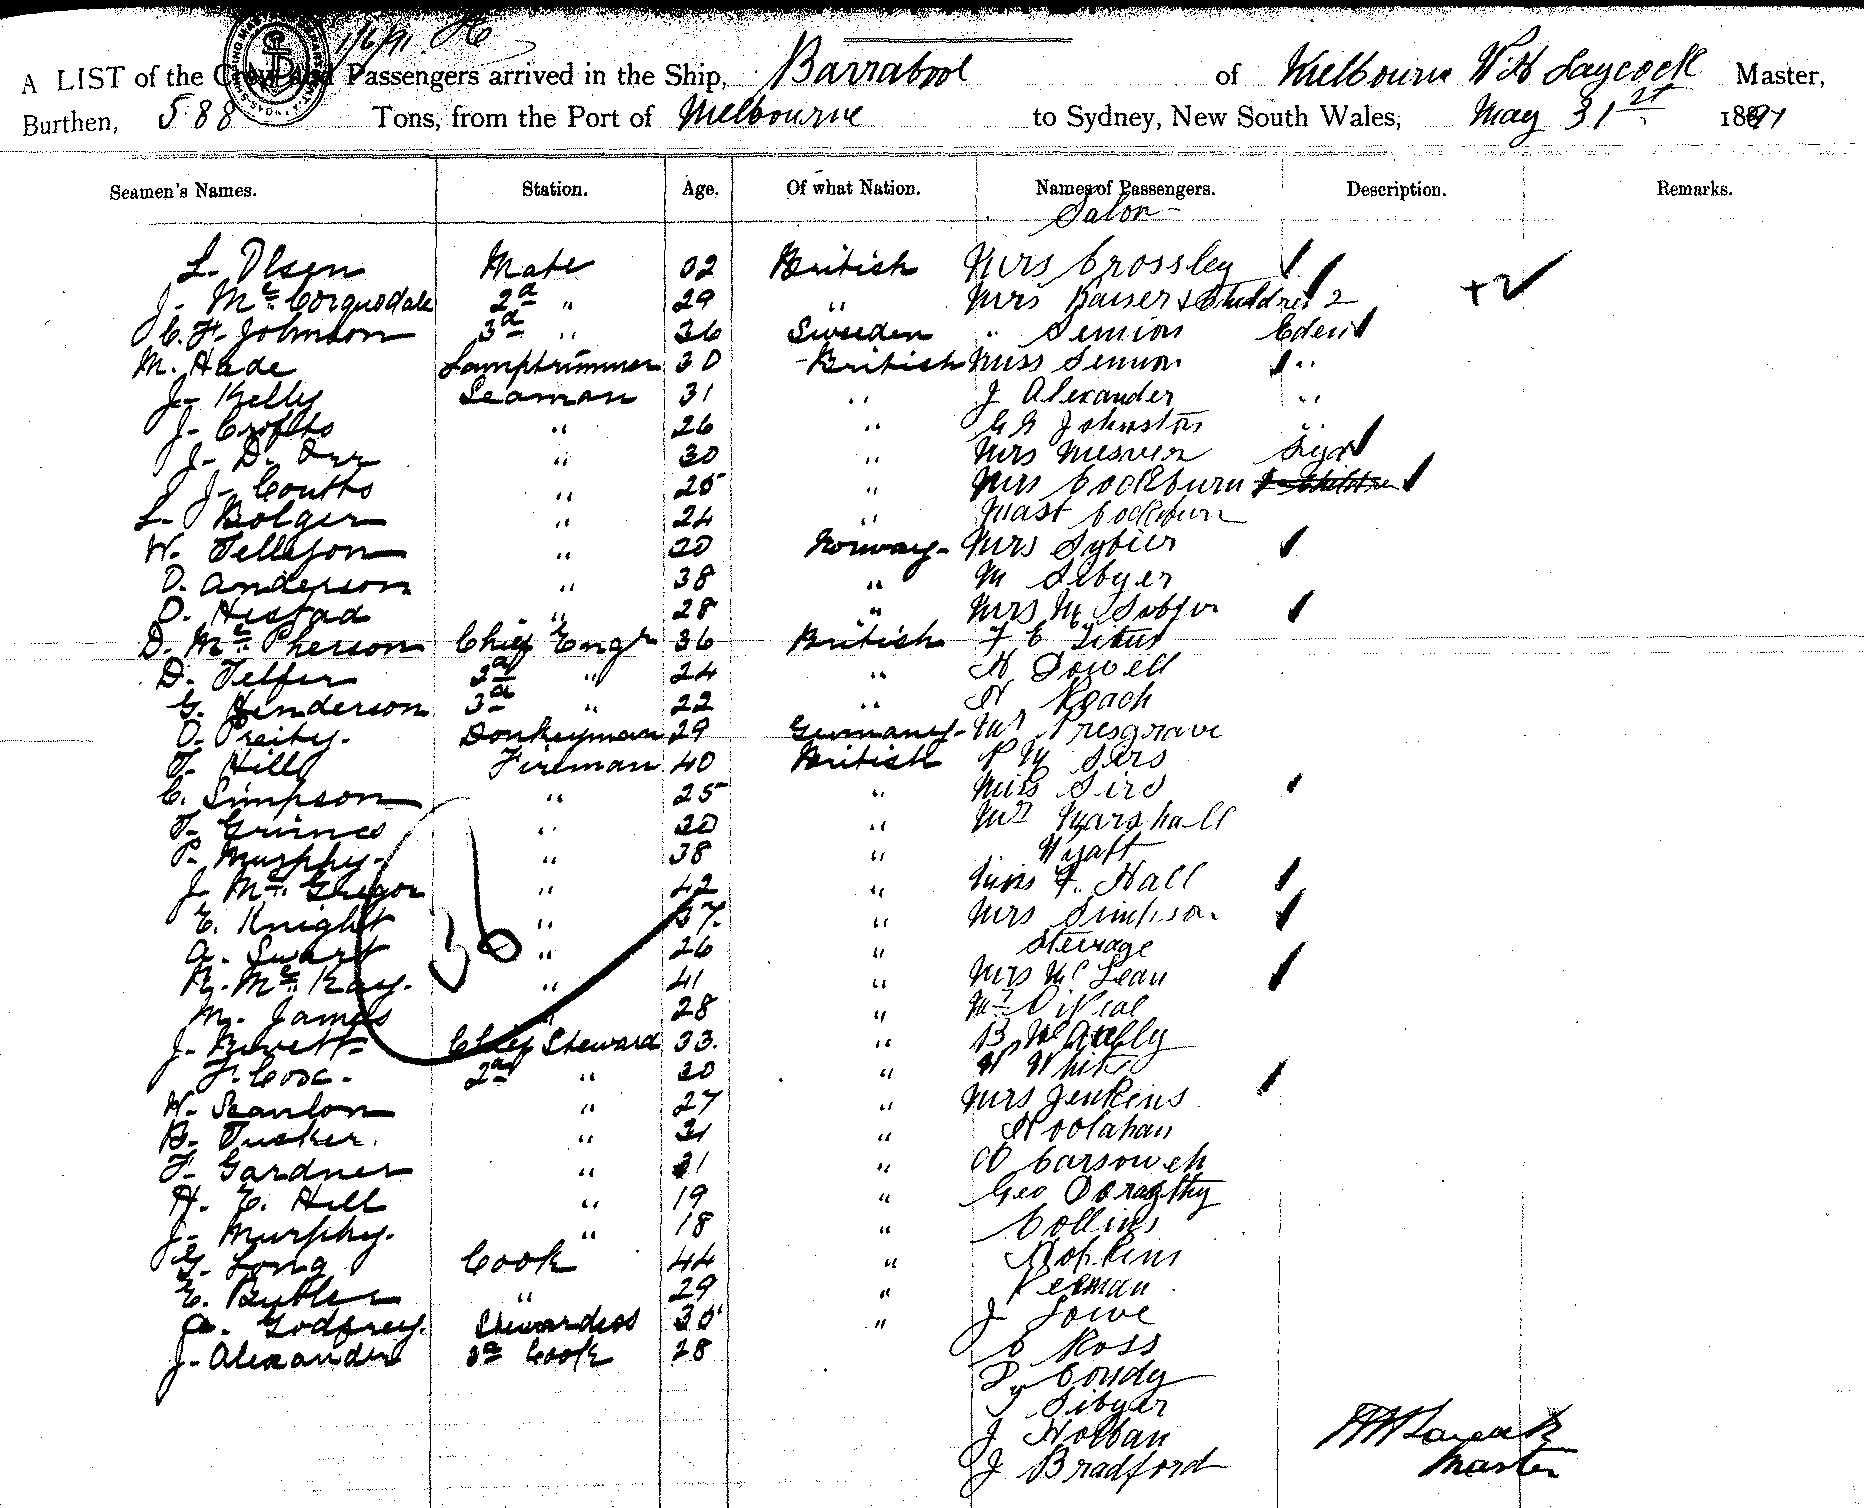 1/6/91.
A LIST of the Crew and Passengers arrived in the Ship, Barrabool of Melbourne W H Laycock Master,
Burthen, 588 Tons, from the Port of Melbourne to Sydney, New South Wales, May 31st 1891
Seamen's Names. Station. Age. Of what Nation. Names of Passengers. Description. Remarks.
Salon
L. Olsen Mate 32 British Mrs Crossley
J. Mc Corquodale 2d " 29 " Mrs Kaiser & Children 2 + 2
C. F. Johnson 3d " 36 Sweeden " Semions Eden
M. Hade Lamptrimmer 30 British Miss Semion "
J. Kelly Seaman 31 " J Alexander "
J. Crofts " 26 " G G Johnston "
J. D. Orr " 30 " Mrs Syd
J. Coutts " 25 " Mrs Cockburn
L. Bolger " 24 " Mast Cockburn
W. Tellefson " 20 Norway Mrs
O. Anderson " 38 " M Sibyer
O. Hestad " 28 " Mrs M
D. Mc Pherson Chief Engr 36 British F E Titus
D. Telfer 2d " 24 " H Powell
G. Henderson 3d " 22 " H Roach
O. Donkeyman 29 Germany Mr Presgrave
T. Hill Fireman 40 British P M
C. Simpson " 25 " Miss
T. Grimes " 30 " Mr Marshall
P. Murphy " 38 " Wyatt
J. Mc Gregor " 42 " Miss F. Hall
E. Knight " 37 " Mrs Simpson
A. Swart " 26 " Steerage
R. Mc Kay. " 41 " Mrs Mc Lean
M. James " 28 " Mr O'Neal
J. Chief Steward 33. " B McAnally
F. Cox. 2d " 20 " W White
W. Scanlon " 27 " Mrs Jenkins
B. Tusker. " 31 " Hoolahan
F. Gardner " 31 "
H. E. Hill " 19 " Geo
J. Murphy. " 18 " Collins
G. Long Cook 44 " Hopkins
E. Butler " 29 "
A. Godfrey. Stewardess 35 " J Lowe
J. Alexander 3d Cook 28 C Ross
36
Condy
Sibyer
J
W H Laycock
J Bradford
Master